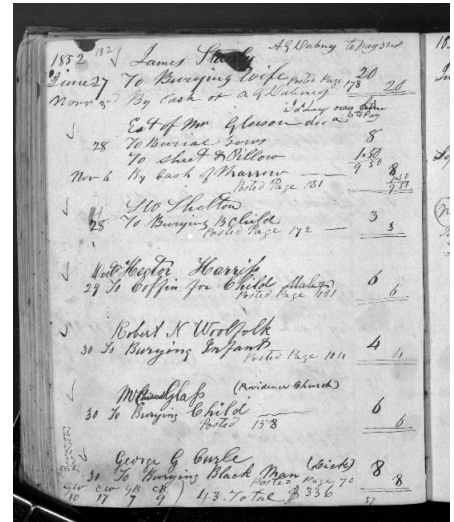 1852 182 James A G Dabney to Pay
June 27 To Burying Wife Posted Page 178 20
Novr By Cash of A G Dabney 20
Est of Mr Gleason dec
28 To Burial 8
To Sheet & Pillow 1.50
9 50
Nov 6 By Cash of Marrow 8
Posted Page 131 1.50
9 50
S W Shelton
28 To Burying B Child 3
Posted Page 172 3
Hector Harriss
29 To Coffin for Child 6
Posted Page 151 6
Robert N Woolfolk
30 To Burying Infant 4
Posted Page 104 4
Glass (Providence Church)
30 To Burying Child 6
Posted 158 6
George G Curle (Lick)
30 To Burying Black Man 8
Posted Page 70 8
GW CW YB CB
10 17 7 9 43. Total $336